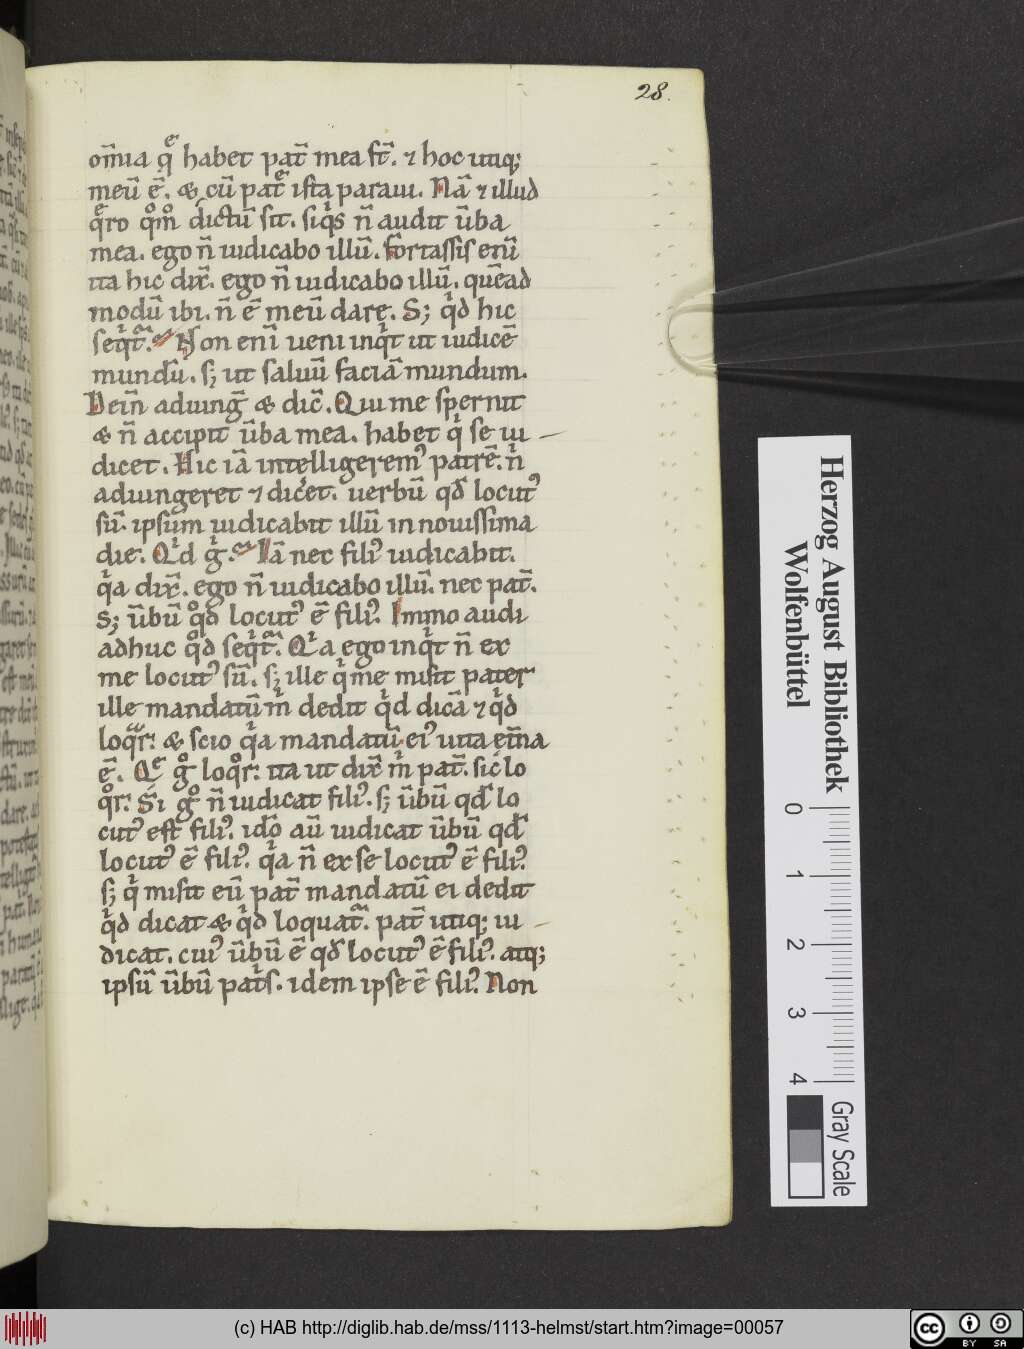 28.
om̄ia q̄ͤ habet pat̄ mea st̄. ⁊ hoc utiq;
meū ē. & cū pat̄ͤ ista paraui. Nā ⁊ illud
q̄ͤro qͦmͦ dictū sit. siqͥs n̄ audit ūba
mea. ego n̄ iudicabo illū. fortassis enī
ita hic dix̄. ego n̄ iudicabo illū. quēad
modū ibi. n̄ ē meū dare. S; qͥd hic
seqͥt̄ᷓ. Non enī ueni inqͥt ut iudicē
mundū. s; ut saluū faciā mundum.
Dein̄ adiunḡ & dic̄. Qui me spernit
& n̄ accipit ūba mea. habet qͥ se iu
dicet. Hic iā intelligerem᷒ patrē. nͥ
adiungeret ⁊ dicet. uerbū qd̄ locut᷒
sū. ipsum iudicabit illū in nouissima
die. Qͥd gͥ. Iā nec fili᷒ iudicabit.
qͥa dix̄. ego n̄ iudicabo illū. nec pat̄.
S; ūbū qͦd locut᷒ ē fili᷒. Immo audi
adhuc qͦd seqͥt̄ᷓ. Qͥa ego inqͥt n̄ ex
me locut᷒ sū. s; ille qͥ me misit pater
ille mandatū mͥ dedit qͥd dicā ⁊ qͥd
loqᷓr. & scio qͥa mandatū ei᷒ uita et̄na
ē. Qͤ gͦ loqͦr. ita ut dix̄ mͥ pat̄. sic lo
qͦr. Si gͦ n̄ iudicat fili᷒. s; ūbū qd̄ lo
cut᷒ est fili᷒. idō aū iudicat ūbū qd̄
locut᷒ ē fili᷒. qͥa n̄ ex se locut᷒ ē fili᷒.
s; qͥ misit eū pat̄ mandatū ei dedit
qͥd dicat & qͥd loquat̄ᷓ. pat̄ utiq; iu
dicat. cui᷒ ūbū ē qd̄ locut᷒ ē fili᷒. atq;
ipsū ūbū patͥs. idem ipse ē fili᷒. Non
Herzog August Bibliothek
Wolfenbüttel
0 1 2 3 4
Gray Scale
(c) HAB http://diglib.hab.de/mss/1113-helmst/start.htm?image=00057
cc BY SA